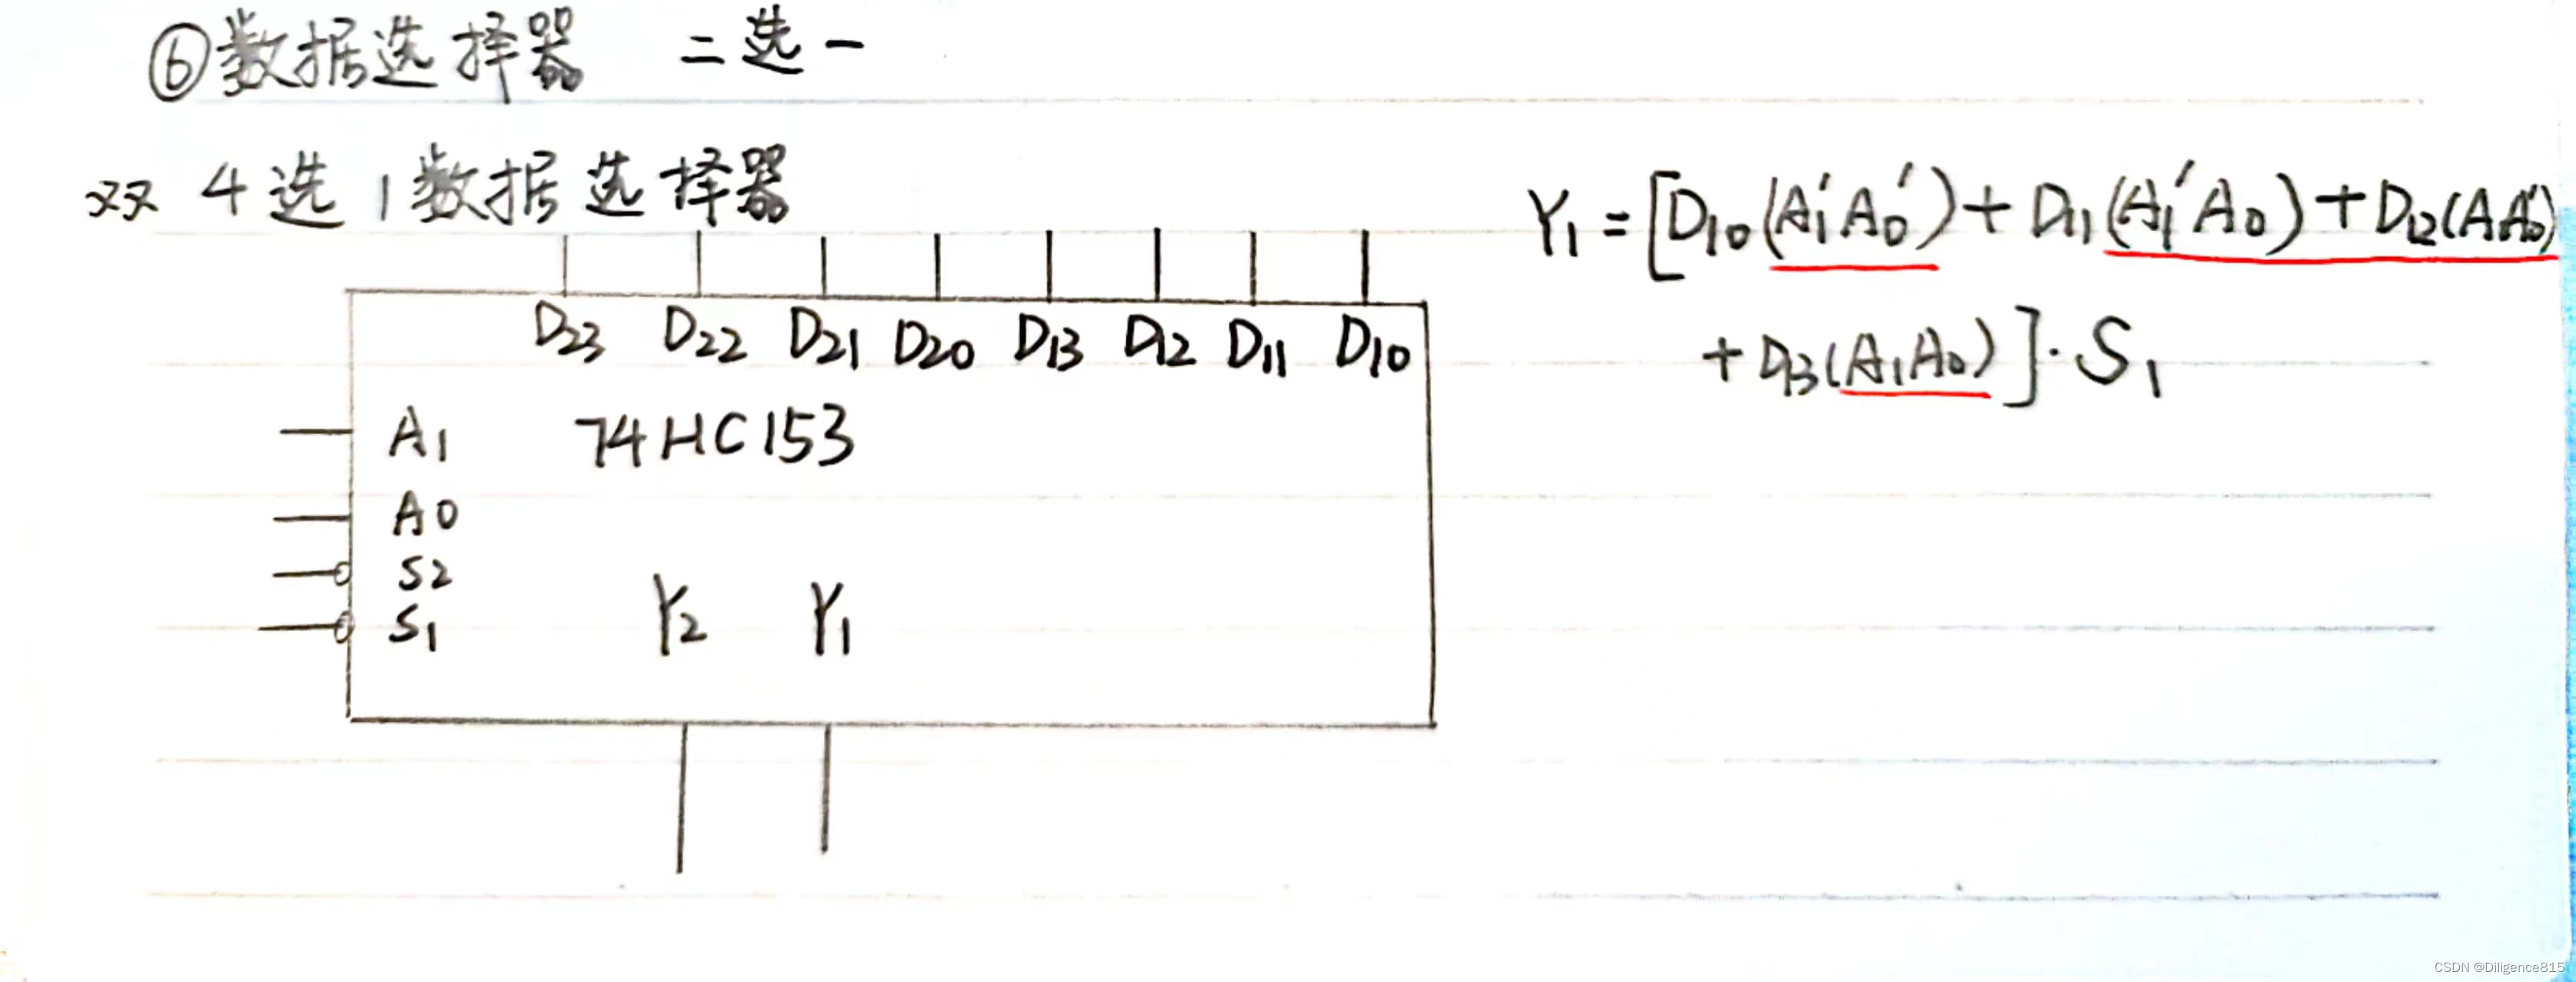 ⑥数据选择器 二选一
双 4选1数据选择器
Y₁=[D₁₀(A₁'A₀')+D₁₁(A₁'A₀)+D₁₂(A₁A₀')
+D₁₃(A₁A₀)]·S₁
D₂₃ D₂₂ D₂₁ D₂₀ D₁₃ D₁₂ D₁₁ D₁₀
A₁ 74HC153
A0
S₂
S₁ Y₂ Y₁
CSDN @Diligence815